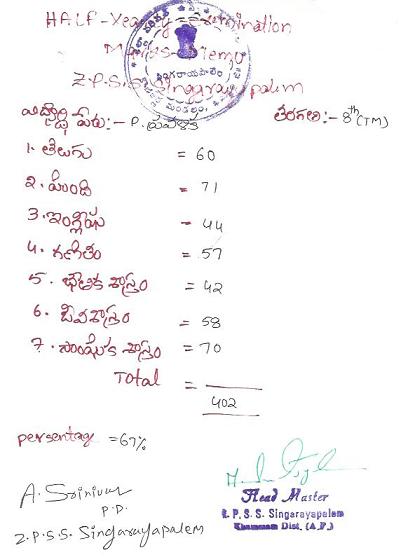 HALF-Yearly Examination
Marks Memo
Z.P.S.S. Singarayapalem
విద్యార్థి పేరు:- P.
తరగతి:- 8th (TM)
1. తెలుగు = 60
2. హింది = 71
3. ఇంగ్లీషు = 44
4. గణితం = 57
5. భౌతిక శాస్త్రం = 42
6. జీవశాస్త్రం = 58
7. సాంఘిక శాస్త్రం = 70
Total = 402
persentag = 67%
A. Srinivas
P.D.
Z.P.S.S. Singarayapalem
Head Master
Z. P. S. S. Singarayapalem
Khammam Dist. (A.P.)